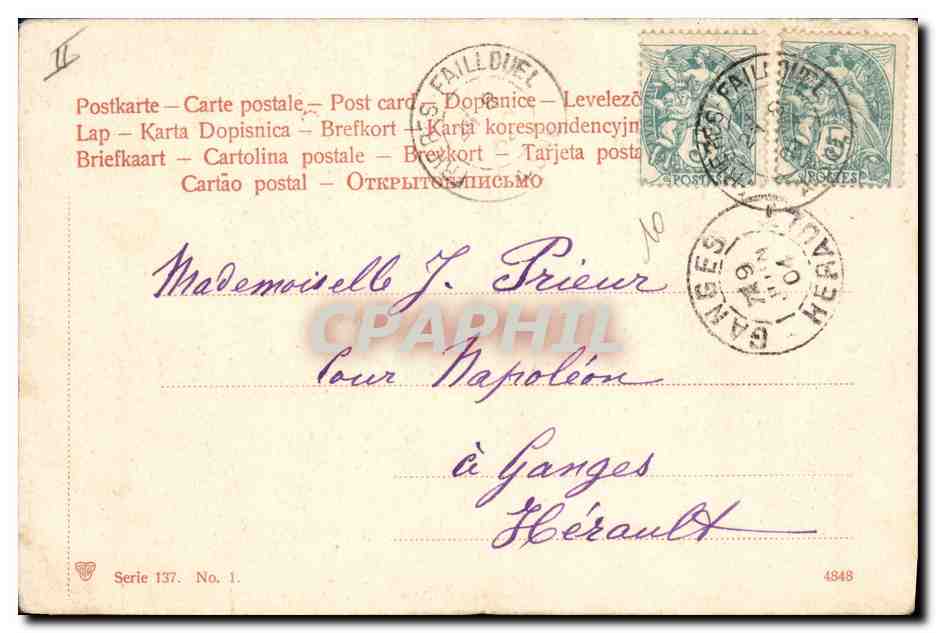 II
Postkarte – Carte postale – Post card – Dopisnice – Levelező
Lap – Karta Dopisnica – Brefkort – Karta korespondencyjn
Briefkaart – Cartolina postale – Brevkort – Tarjeta posta
Cartão postal – Открытое письмо
FAILLOUEL
FAILLOUEL
POSTES
POSTES
10
GANGES
HERAULT
04
Mademoiselle J. Prieur
CPAPHIL
Cour Napoléon
à Ganges
Hérault
Serie 137. No. 1.
4848